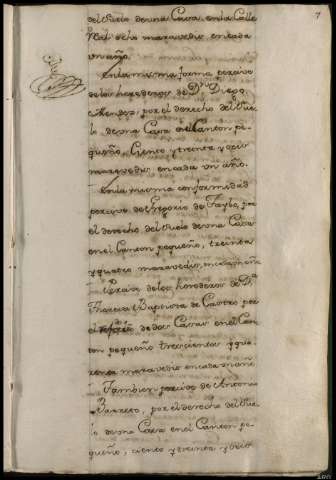 7
del suelo de una Casa, en la Calle
Rl. de la maravedis en cada
un año.
En la misma forma percivo
de los herederos de Dn. Diego
Mendez, por el derecho del Sue
lo de una Casa en el Canton pe
queño, Ciento y treinta y seis
maravedis, en cada un año.
En la misma conformidad
percivo de Gregorio de Taybo, por
el derecho del suelo de una Casa
en el Canton pequeño, treinta
y quatro maravedis, en cada un año
Percivo de los herederos de Da.
Theresa Baptista de Castro por
el de dos Casas en el Can
ton pequeño trescientos y qua
renta maravedis en cada un año
Tambien percivo de Antonio
Barreto, por el derecho del Sue
lo de una Casa en el Canton pe
queño, ciento y treinta y seis